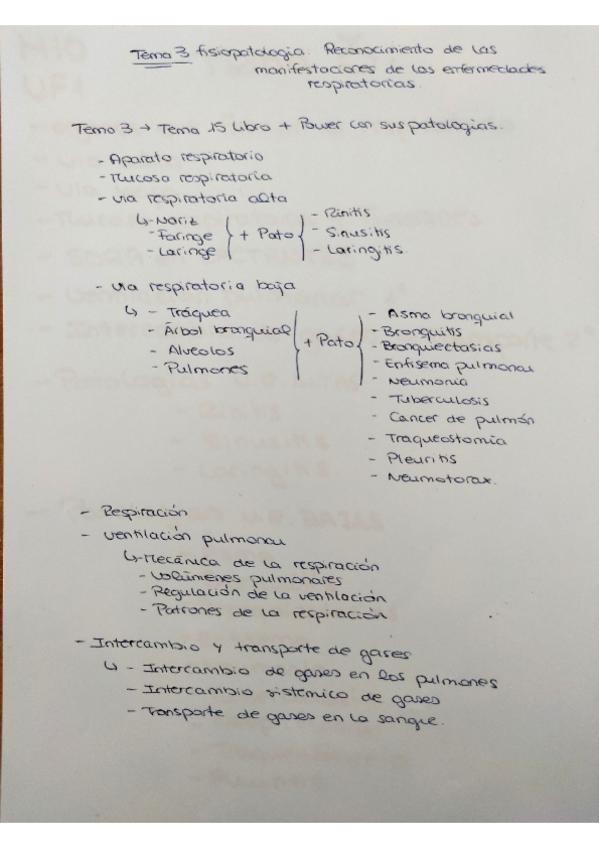 Tema 3 fisiopatologia. Reconocimiento de las
manifestaciones de las enfermedades
respiratorias.
Tema 3 → Tema 15 libro + Power con sus patologias.
- Aparato respiratorio
- Mucosa respiratoria
- via respiratoria alta
↳ - Nariz
- Faringe
- Laringe
+ Pato
- Rinitis
- Sinusitis
- Laringitis.
- via respiratoria baja
↳ - Tráquea
- Árbol bronquial
- Alveolos
- Pulmones
+ Pato
- Asma bronquial
- Bronquitis
- Bronquiectasias
- Enfisema pulmonar
- Neumonia
- Tuberculosis
- Cancer de pulmón
- Traqueostomia
- Pleuritis
- Neumotorax.
- Respiración
- ventilación pulmonar
↳ - Mecánica de la respiración
- Volúmenes pulmonares
- Regulación de la ventilación
- Patrones de la respiración
- Intercambio y transporte de gases
↳ - Intercambio de gases en los pulmones
- Intercambio sistémico de gases
- Transporte de gases en la sangre.